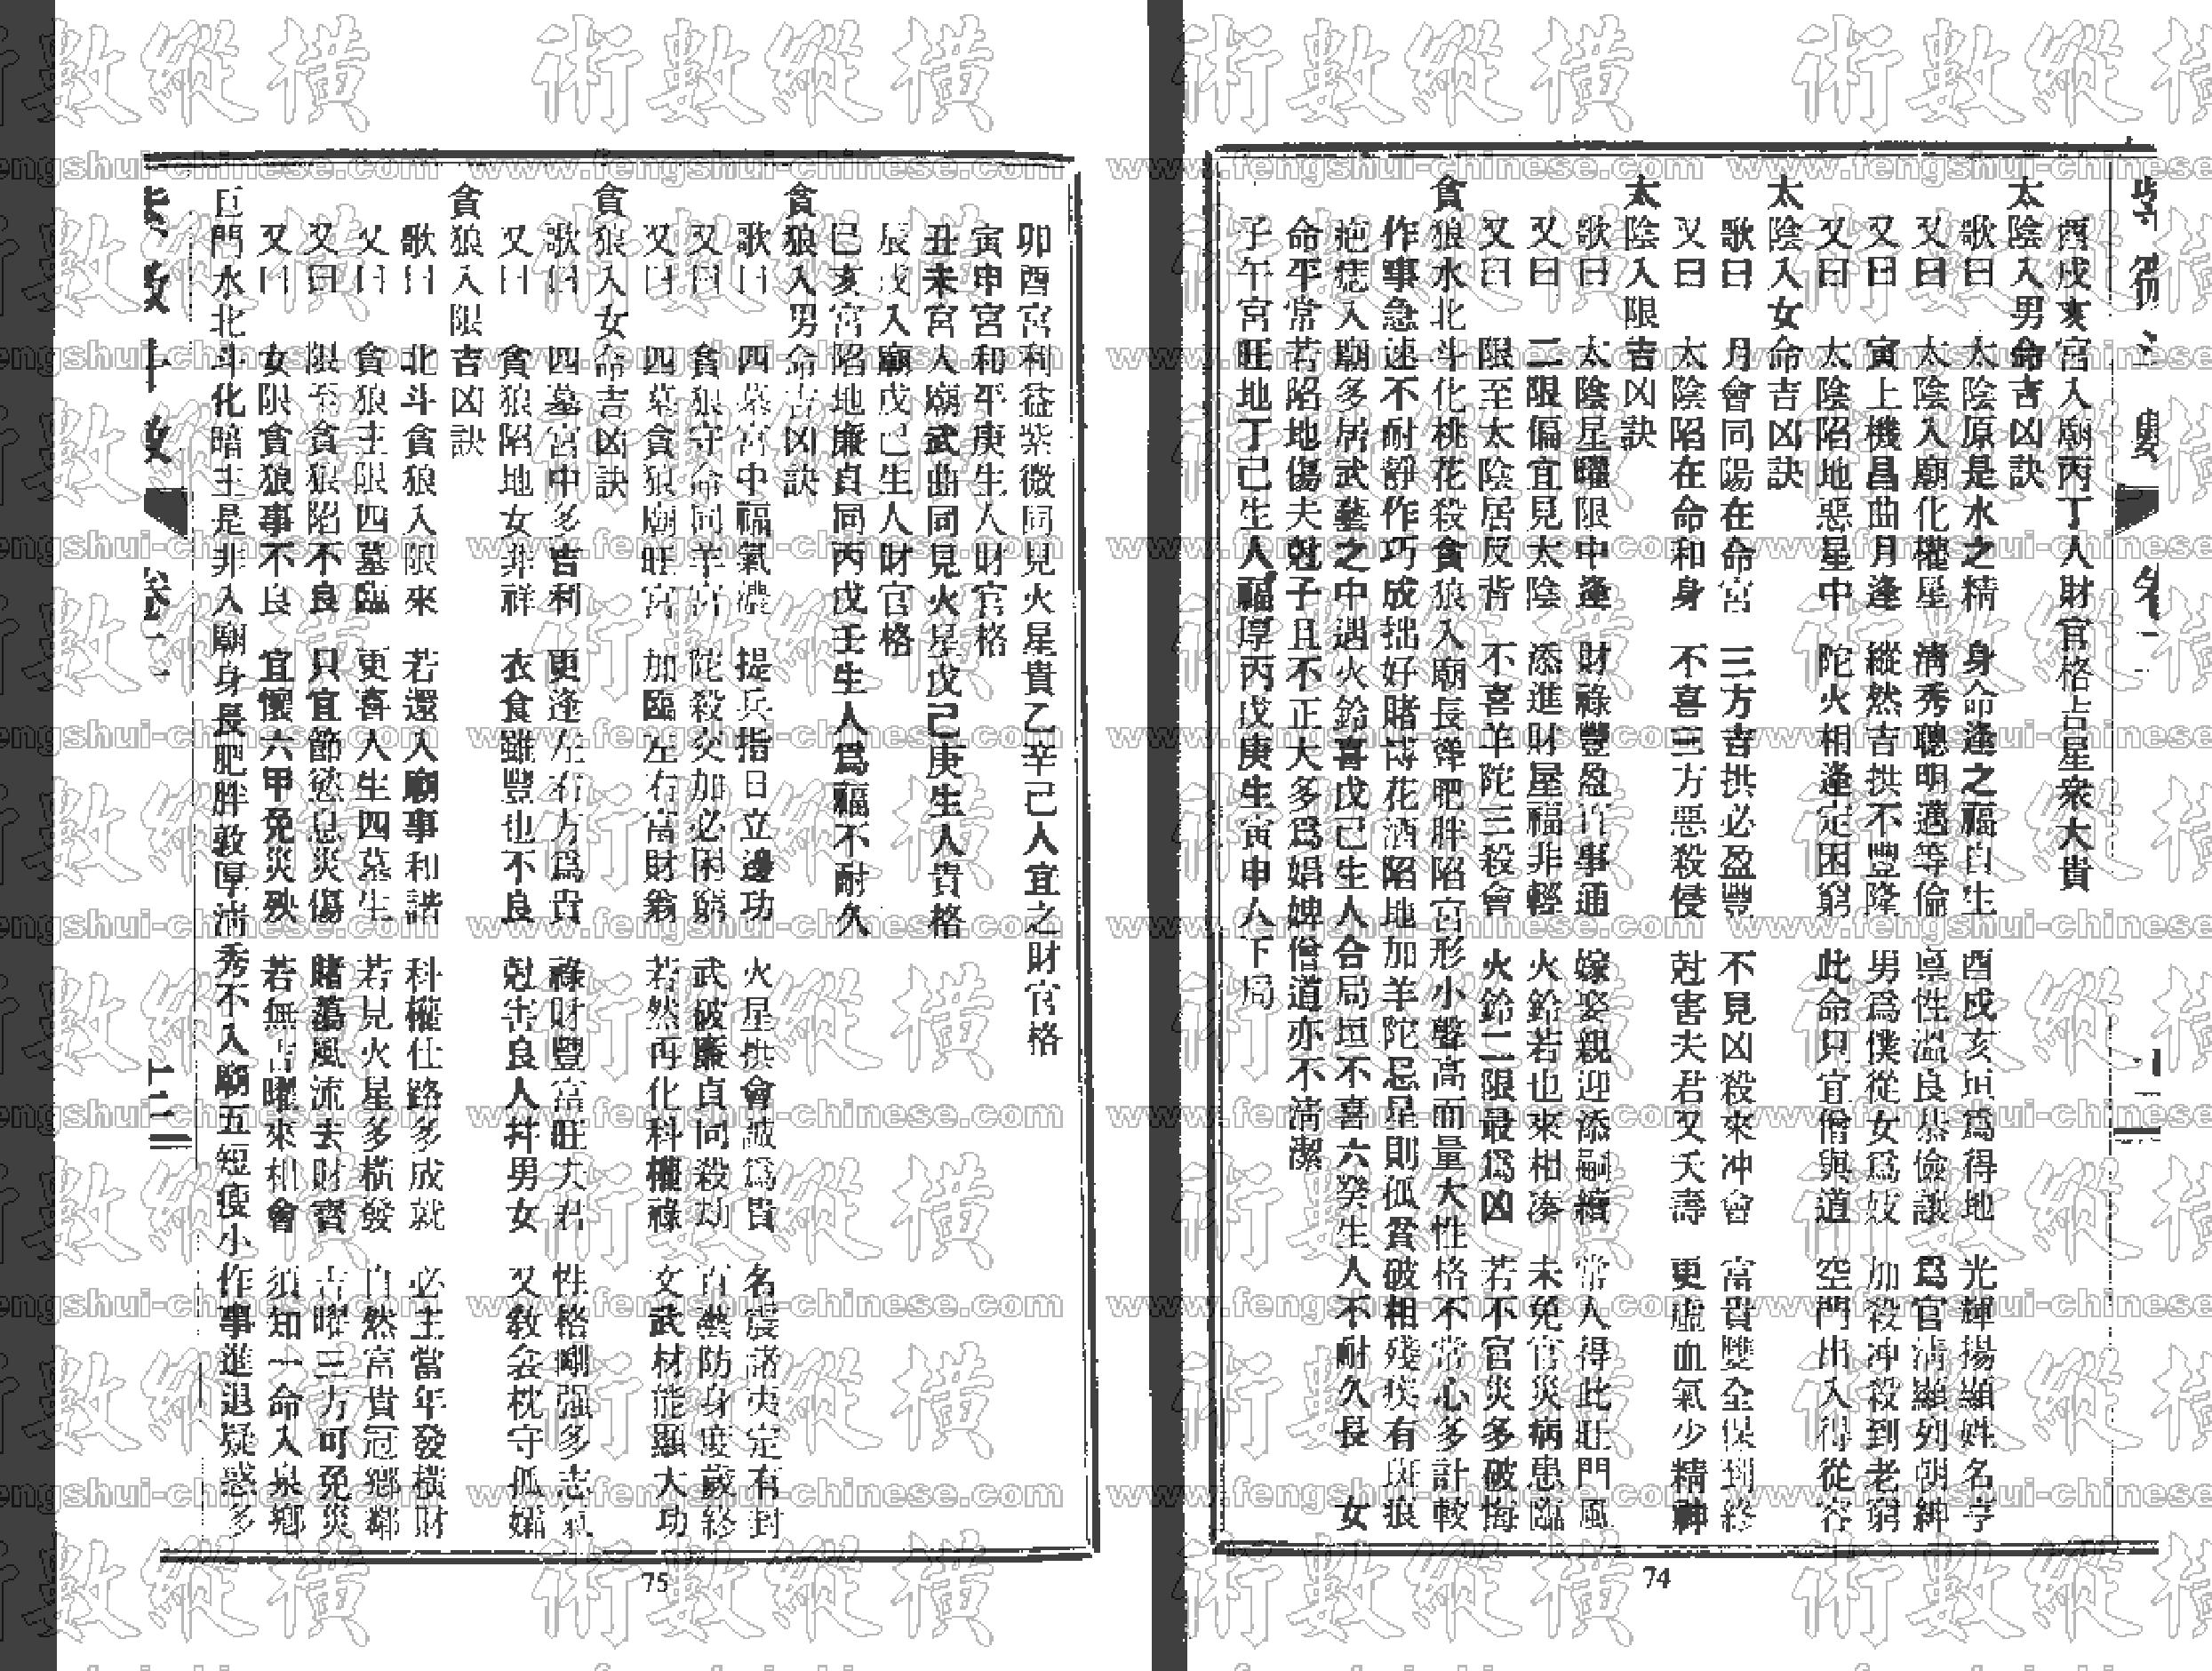 酉戌亥宮入廟丙丁人財官格吉星衆大貴
太陰入男命吉凶訣
歌曰 太陰原是水之精 身命逢之福自生 酉戌亥垣爲得地 光輝揚顯姓名亨
又曰 太陰入廟化權星 清秀聰明邁等倫 稟性溫良恭儉讓 爲官清顯列朝紳
又曰 寅上機昌曲月逢 縱然吉拱不豐隆 男爲僕從女爲妓 加殺冲殺到老窮
又曰 太陰陷地惡星中 陀火相逢定困窮 此命只宜僧與道 空門出入得從容
太陰入女命吉凶訣
歌曰 月會同陽在命宮 三方吉拱必盈豐 不見凶殺來冲會 富貴雙全保到終
又曰 太陰陷在命和身 不喜三方惡殺侵 尅害夫君又夭壽 更虛血氣少精神
太陰入限吉凶訣
歌曰 太陰星曜限中逢 財祿豐盈百事通 嫁娶親迎添嗣續 常人得此旺門風
又曰 二限偏宜見太陰 添進財屋福非輕 火鈴若也來相湊 未免官災病患臨
又曰 限至太陰居反背 不喜羊陀三殺會 火鈴二限最爲凶 若不官災多破悔
貪狼水北斗化桃花殺貪狼入廟長聳肥胖陷宮形小聲高而量大性格不常心多計較
作事急速不耐靜作巧成拙好賭博花酒陷地加羊陀忌星則孤貧破相殘疾有斑痕
疤痣入廟多居武藝之中遇火鈴喜戊己生人合局垣不喜六癸生人不耐久長 女
命平常若陷地傷夫尅子且不正大多爲娼婢僧道亦不清潔
子午宮旺地丁己生人福厚丙戊庚生寅申人下局
74
卯酉宮利益紫微同見火星貴乙辛己人宜之財官格
寅申宮和平庚生人財官格
丑未宮人廟武曲同見火星戊己庚生人貴格
辰戌入廟戊己生人財官格
巳亥宮陷地廉貞同丙戊壬生人爲福不耐久
貪狼入男命吉凶訣
歌曰 四墓宮中福氣濃 提兵指日立邊功 火星拱會誠爲貴 名震諸夷定有封
又曰 貪狼守命同羊宮 陀殺交加必困窮 武破廉貞同殺劫 百藝防身度歲終
又曰 四墓貪狼廟旺宮 加臨左右富財翁 若然再化科權祿 文武材能顯大功
貪狼入女命吉凶訣
歌曰 四墓宮中多吉利 更逢左右方爲貴 祿財豐富旺夫君 性格剛强多志氣
又曰 貪狼陷地女非祥 衣食雖豐也不良 尅害良人幷男女 又敎衾枕守孤孀
貪狼入限吉凶訣
歌曰 北斗貪狼入限來 若還入廟事和諧 科權仕路多成就 必主當年發橫財
又曰 貪狼主限四墓臨 更喜人生四墓生 若見火星多橫發 自然富貴冠鄉鄰
又曰 限至貪狼陷不良 只宜節慾息災傷 賭蕩風流去財寶 吉曜三方可免災
又曰 女限貪狼事不良 宜懷六甲免災殃 若無吉曜來相會 須知一命入泉鄉
巨門水北斗化暗主是非入廟身長肥胖敦厚清秀不入廟五短瘦小作事進退疑惑多
75
術數縱橫
www.fengshui-chinese.com